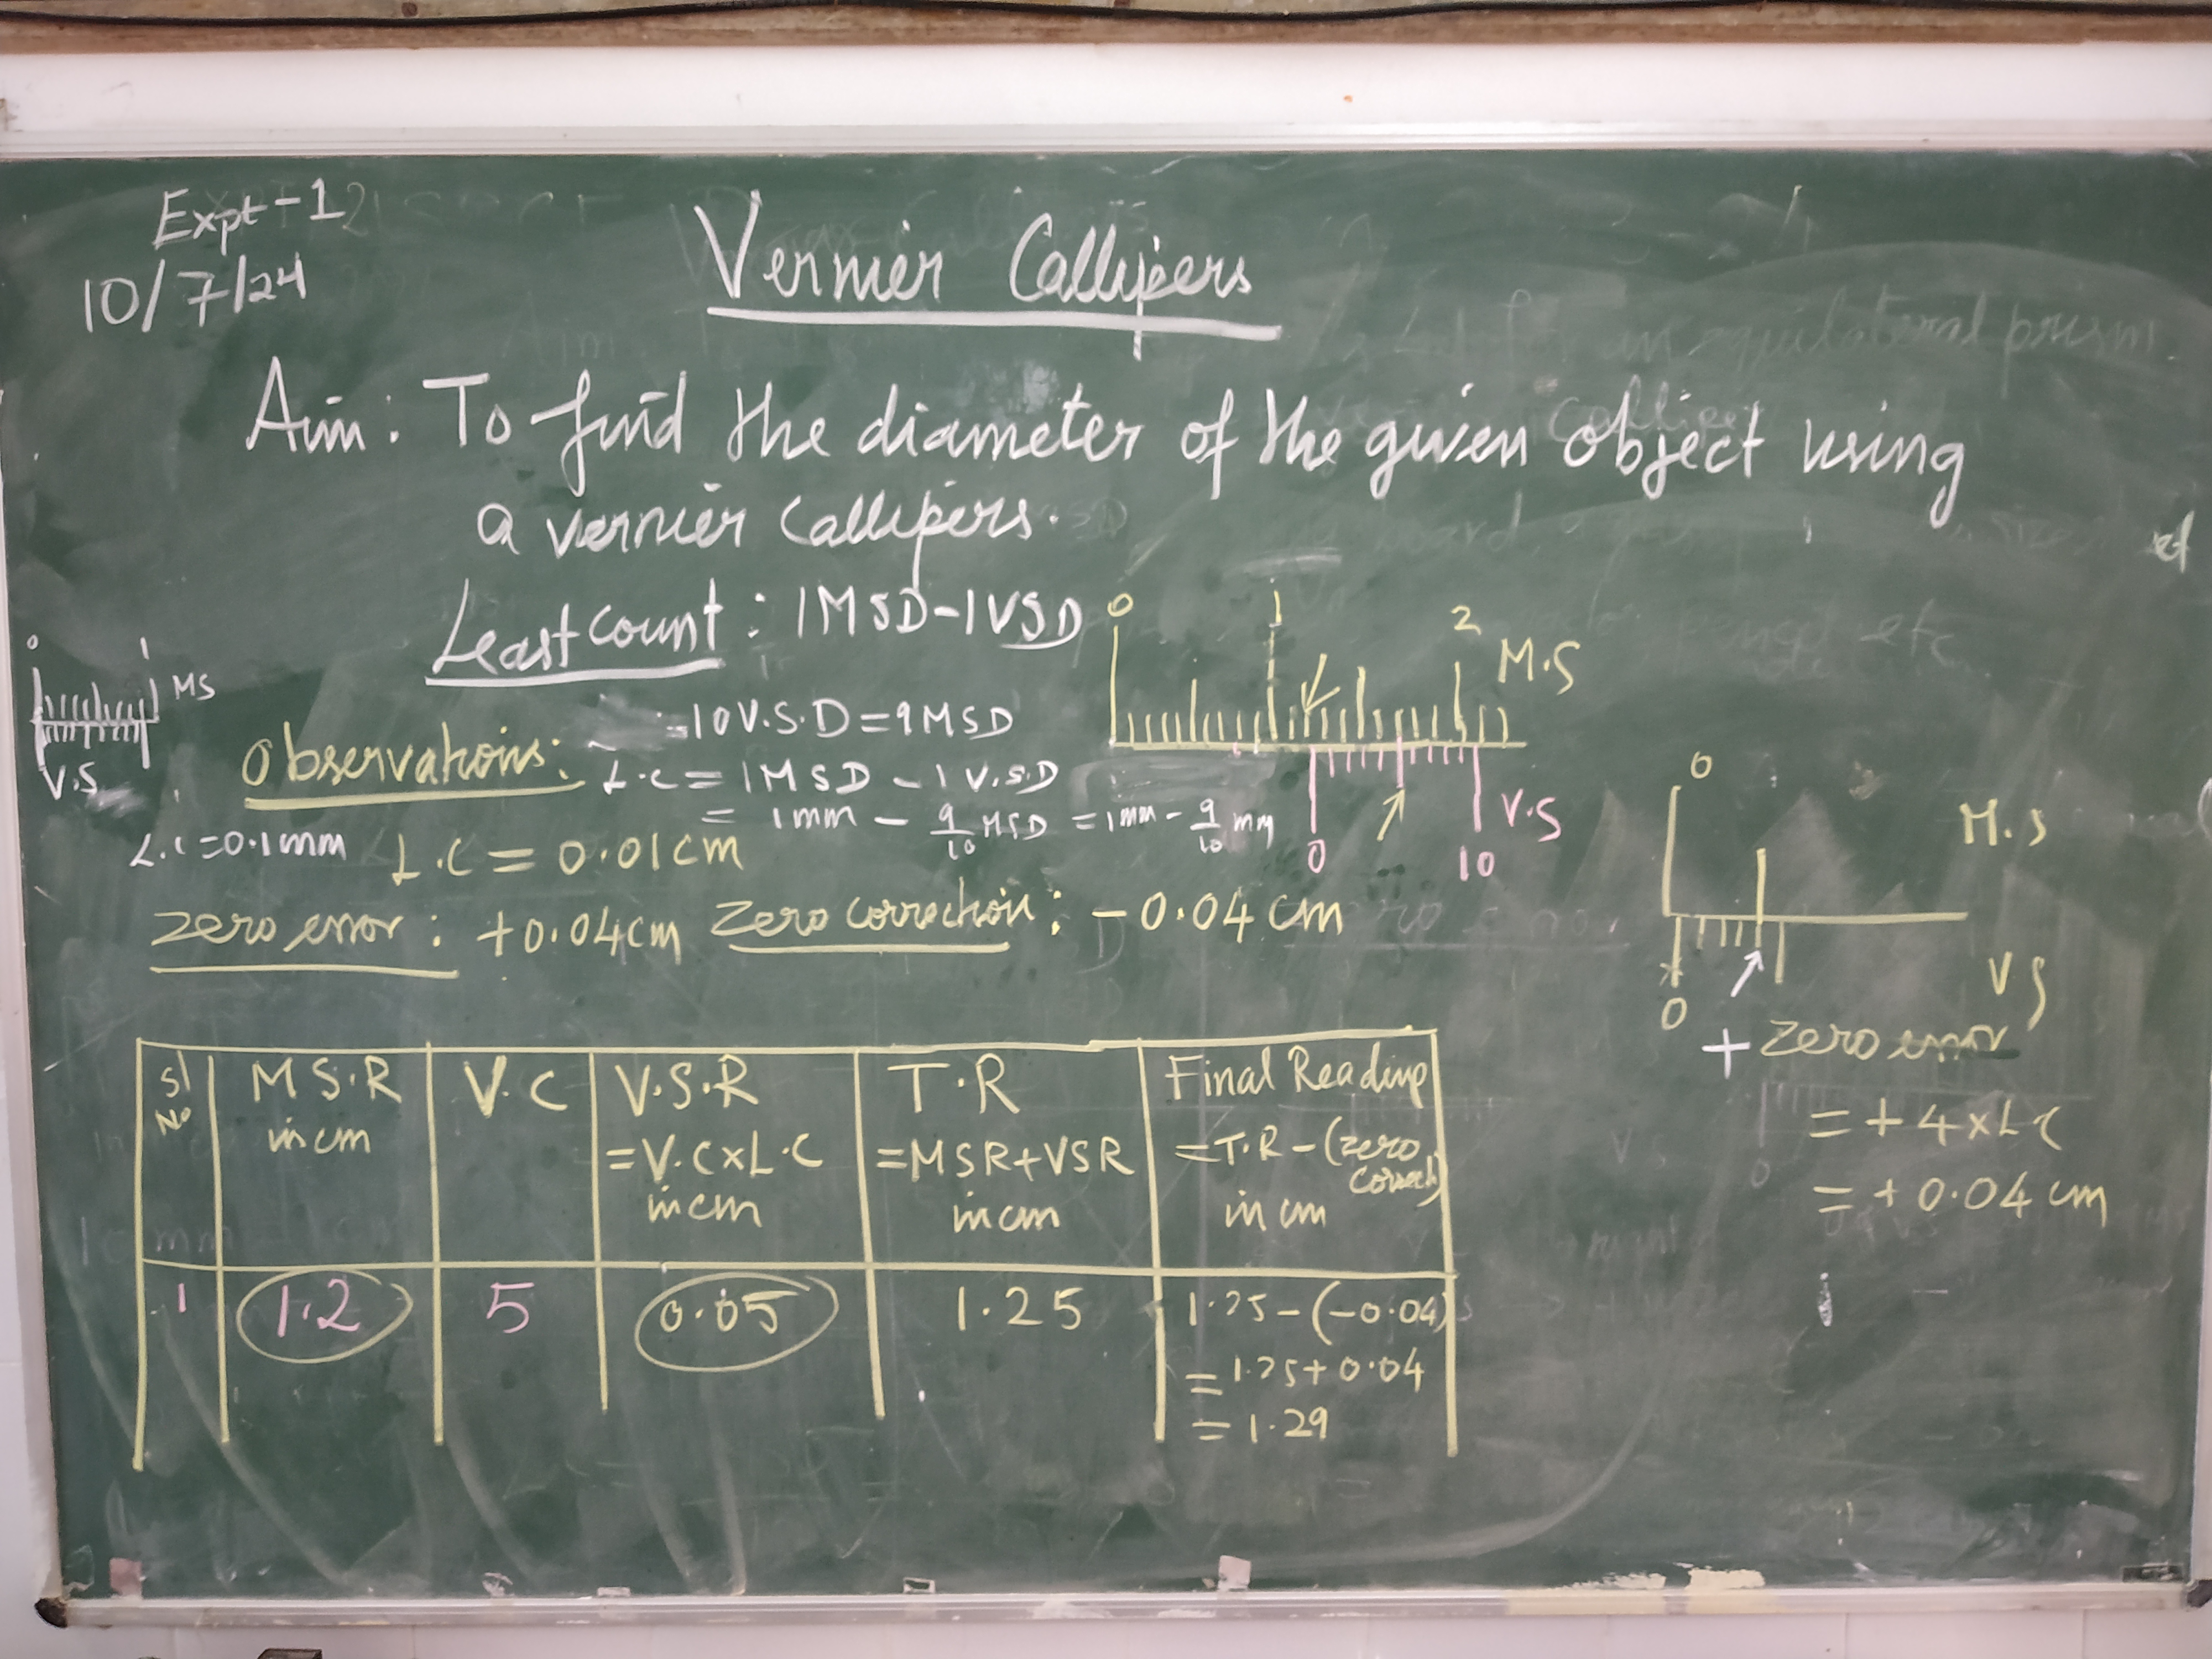 Expt-1
10/7/24
Vernier Callipers
Aim: To find the diameter of the given object using
a vernier callipers.
Least count: 1MSD-1VSD
10V.S.D=9MSD
L.C = 1MSD - 1V.S.D
= 1mm - 9/10 MSD = 1mm - 9/10 mm
0 1 MS
V.S
L.C=0.1mm
0 1 2 M.S
V.S
0 10
Observations:
L.C = 0.01cm
zero error: +0.04cm Zero correction: -0.04cm
0
M.S
VS
0
+ zero error
= + 4xLC
= +0.04 cm
Sl No
M S.R in cm
V.C
V.S.R =V.CxL.C in cm
T.R =MSR+VSR in cm
Final Reading =T.R-(zero Correch) in cm
1 1.2 5 0.05 1.25 1.25-(-0.04)
= 1.25+0.04
= 1.29